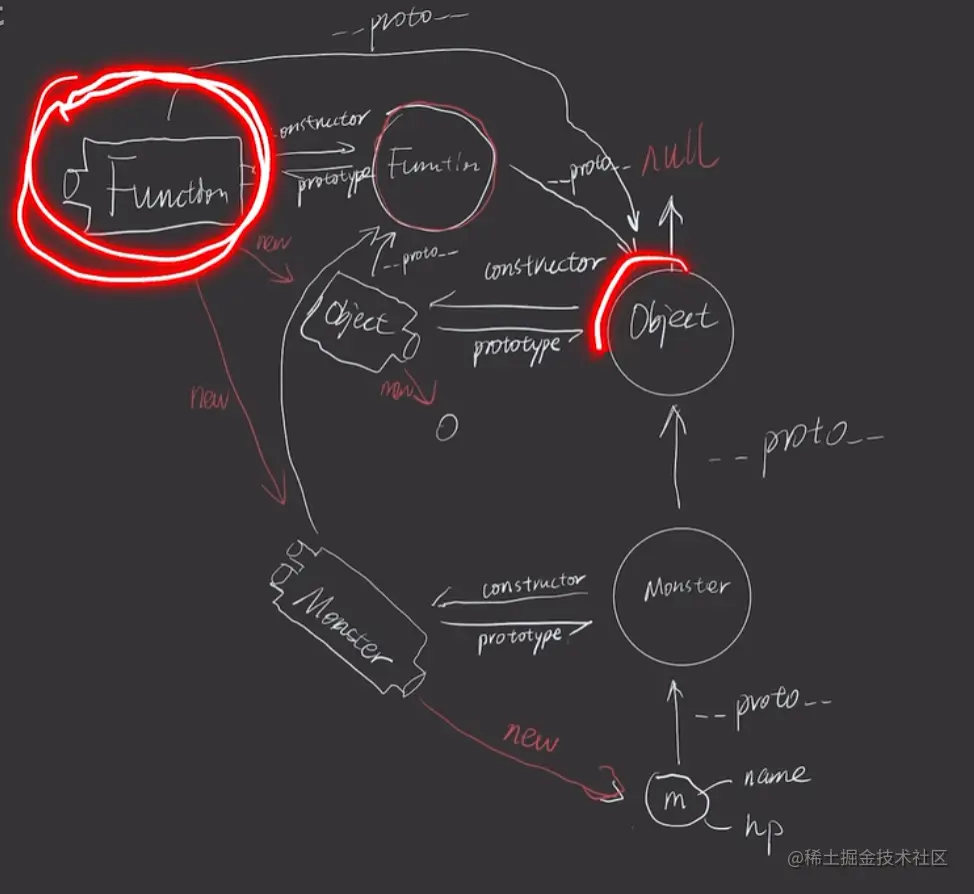 --proto--
constructor
Function
prototype
Function
--proto--
null
new
--proto--
constructor
Object
prototype
Object
new
new
O
--proto--
constructor
Monster
Monster
prototype
--proto--
new
name
m
hp
@稀土掘金技术社区